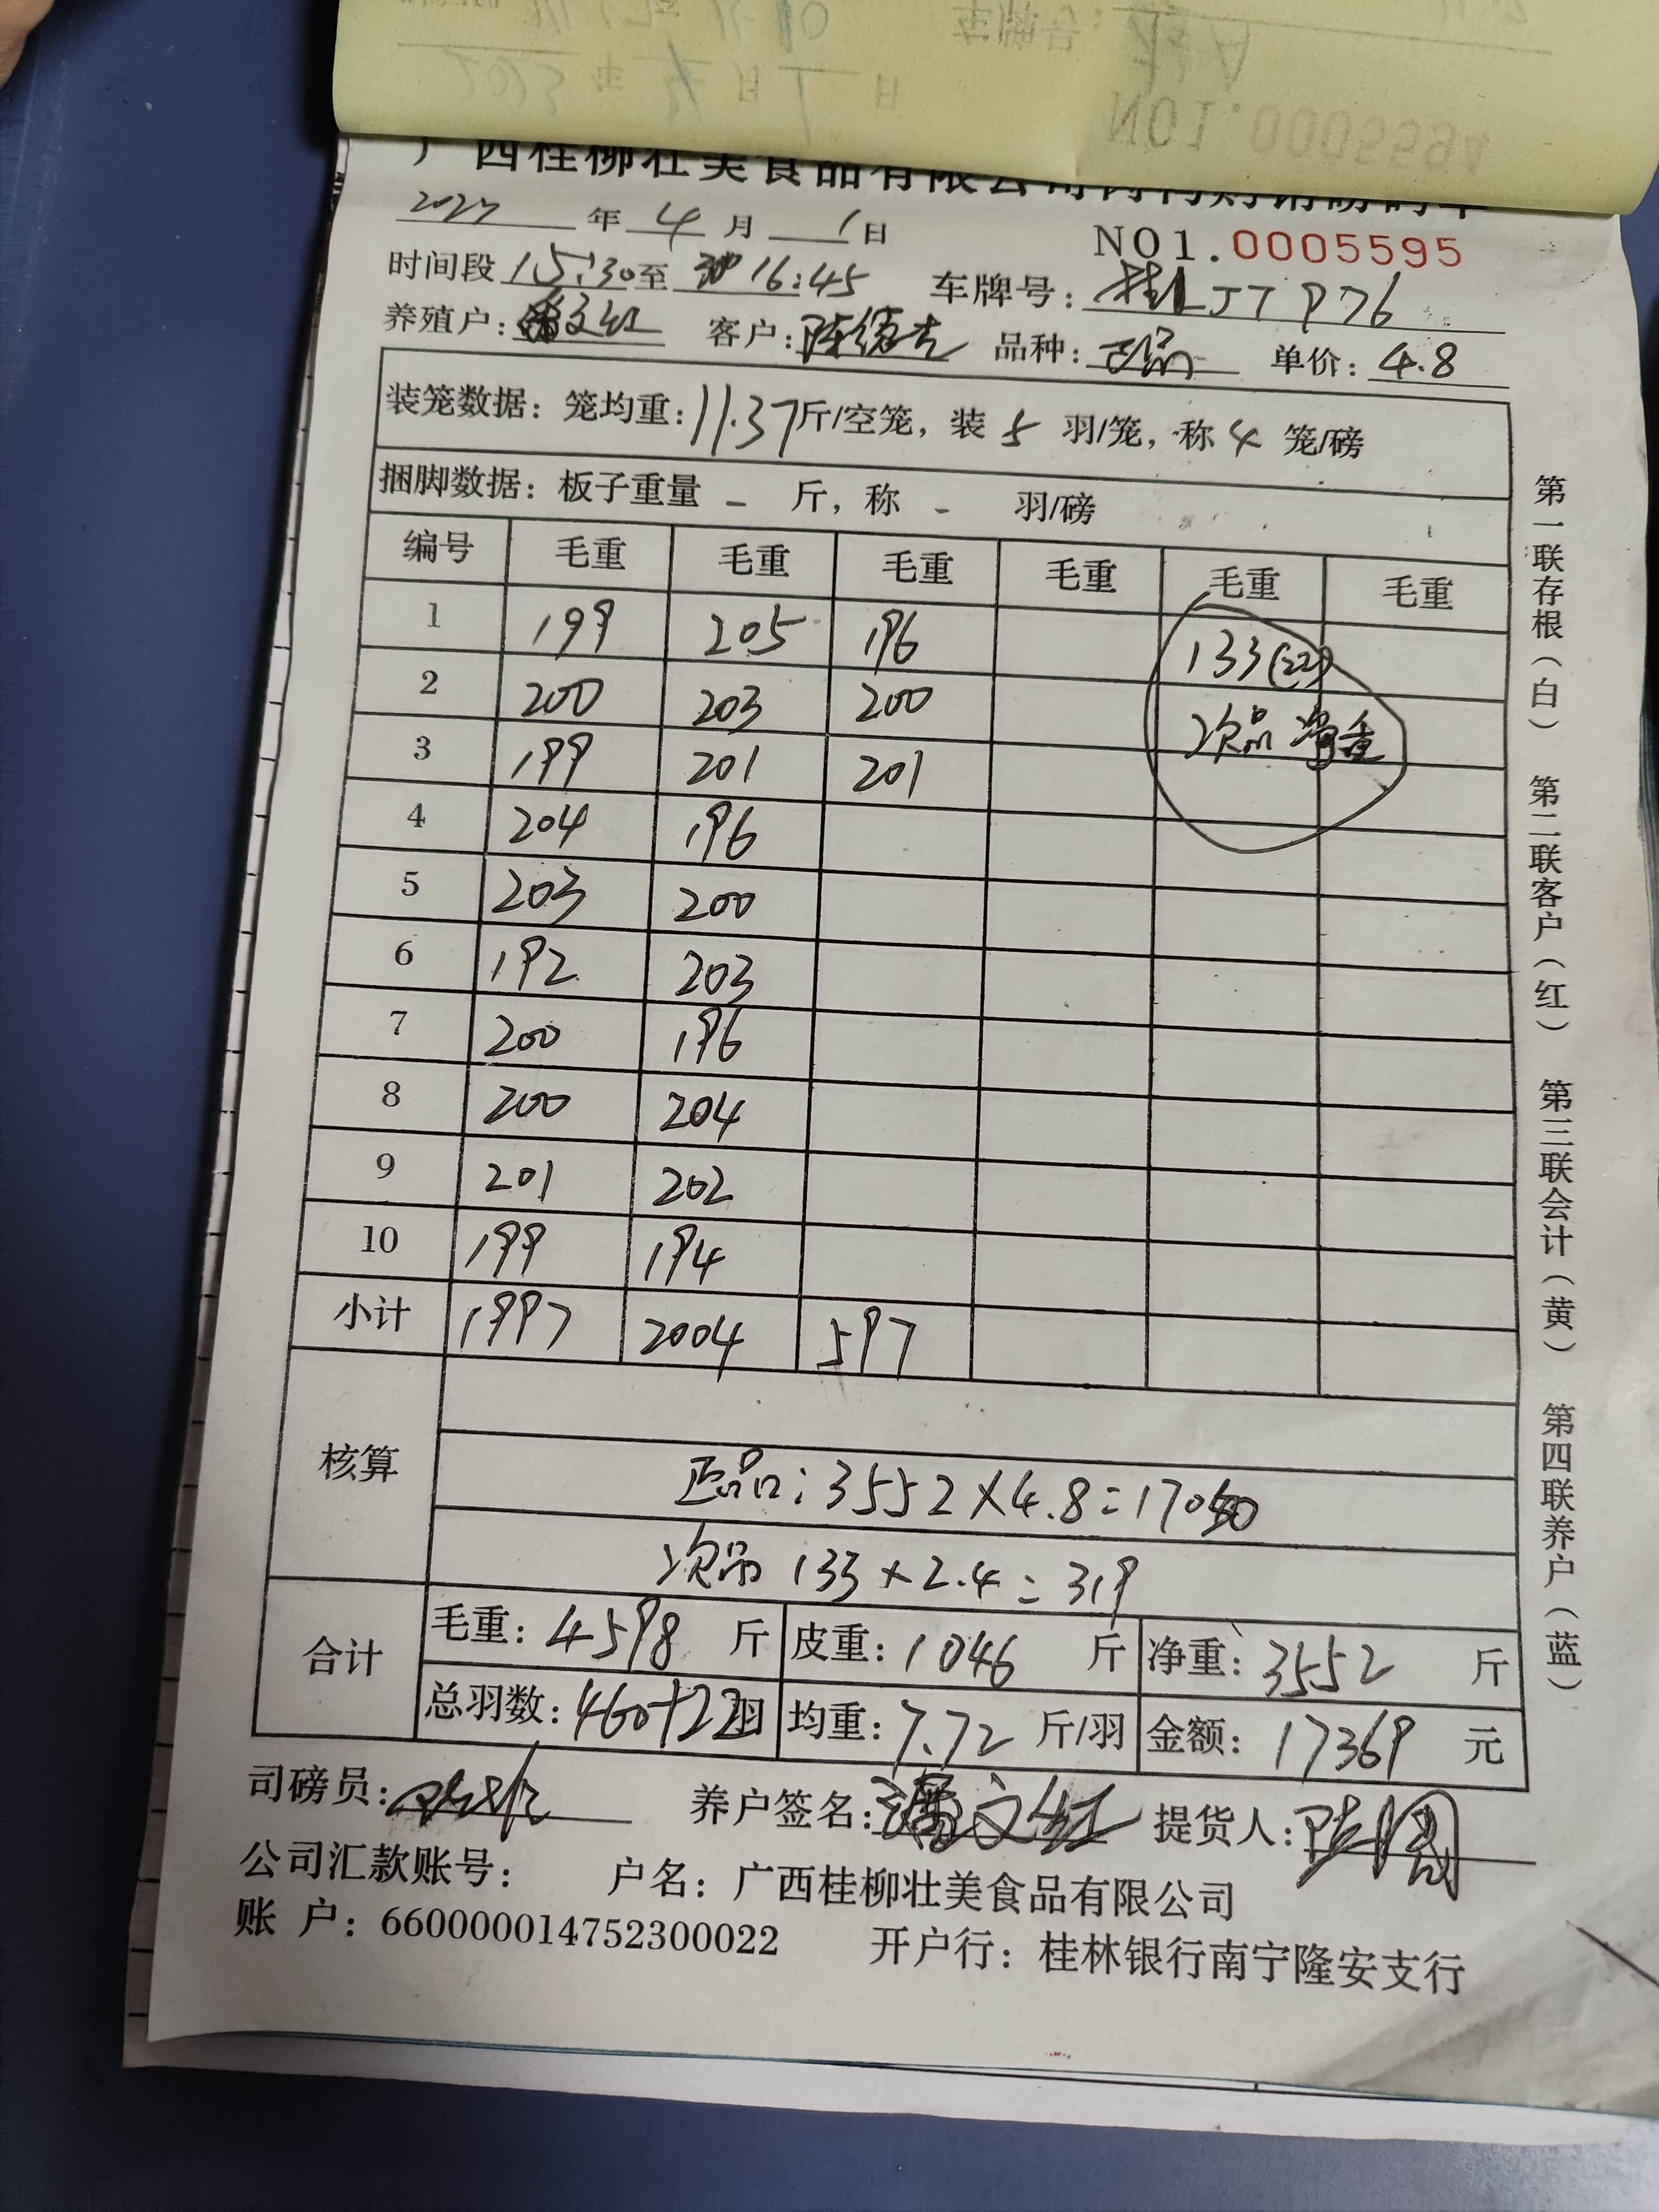 NO1.0005594
广西桂柳壮美食品有限公司
2027年4月1日
NO1.0005595
时间段15:30至16:45 车牌号:桂LJTP76
养殖户:潘文红 客户: 品种: 单价:4.8
装笼数据:笼均重:11.37斤/空笼,装5羽/笼,称4笼/磅
捆脚数据:板子重量 - 斤,称 - 羽/磅
编号 毛重 毛重 毛重 毛重 毛重 毛重
1 199 205 196 133(22)
2 200 203 200 次品 净重
3 199 201 201
4 204 196
5 203 200
6 192 203
7 200 196
8 200 204
9 201 202
10 199 194
小计 1997 2004 597
核算
正品:3552×4.8=17050
次品 133×2.4=319
合计 毛重:4598斤 皮重:1046斤 净重:3552斤
总羽数:460+22羽 均重:7.72斤/羽 金额:17369元
司磅员: 养户签名:潘文红 提货人:
公司汇款账号: 户名:广西桂柳壮美食品有限公司
账 户:660000014752300022 开户行:桂林银行南宁隆安支行
第一联存根(白) 第二联客户(红) 第三联会计(黄) 第四联养户(蓝)